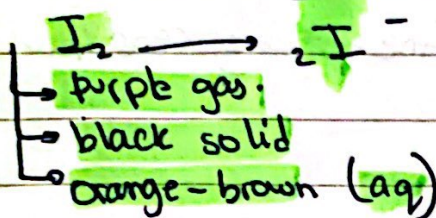 I₂ → ₂I⁻
purple gas.
black solid
orange-brown (aq)